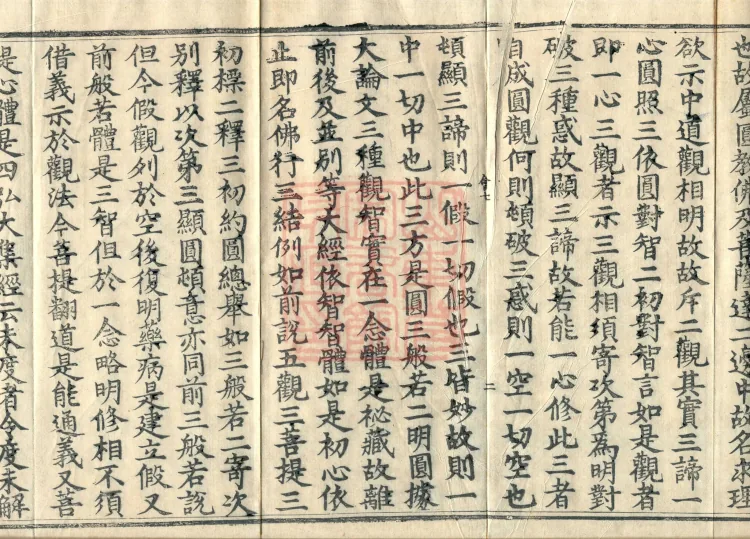 欲示中道觀相明故故斥二觀其實三諦一
心圓照三依圓對智二初對智言如是觀者
即一心三觀者示三觀相須寄次第為明對
破三種惑故顯三諦故若能一心修此三者
自成圓觀何則頓破三惑則一空一切空也
頓顯三諦則一假一切假也三皆妙故則一
中一切中也此三方是圓三般若二明圓據
大論文三種觀智實在一念體是祕藏故離
前後及並別等大經依智智體如是初心依
止即名佛行三結例如前說五觀三菩提三
初標二釋三初約圓總舉如三般若二寄次
別釋以次第三顯圓頓意亦同前三般若說
但今假觀列於空後復明藥病是建立假又
前般若體是三智但於一念略明修相不須
借義示於觀法今菩提翻道是能通義又菩
是心體是四弘大集經云未度者令度未解
會七
二